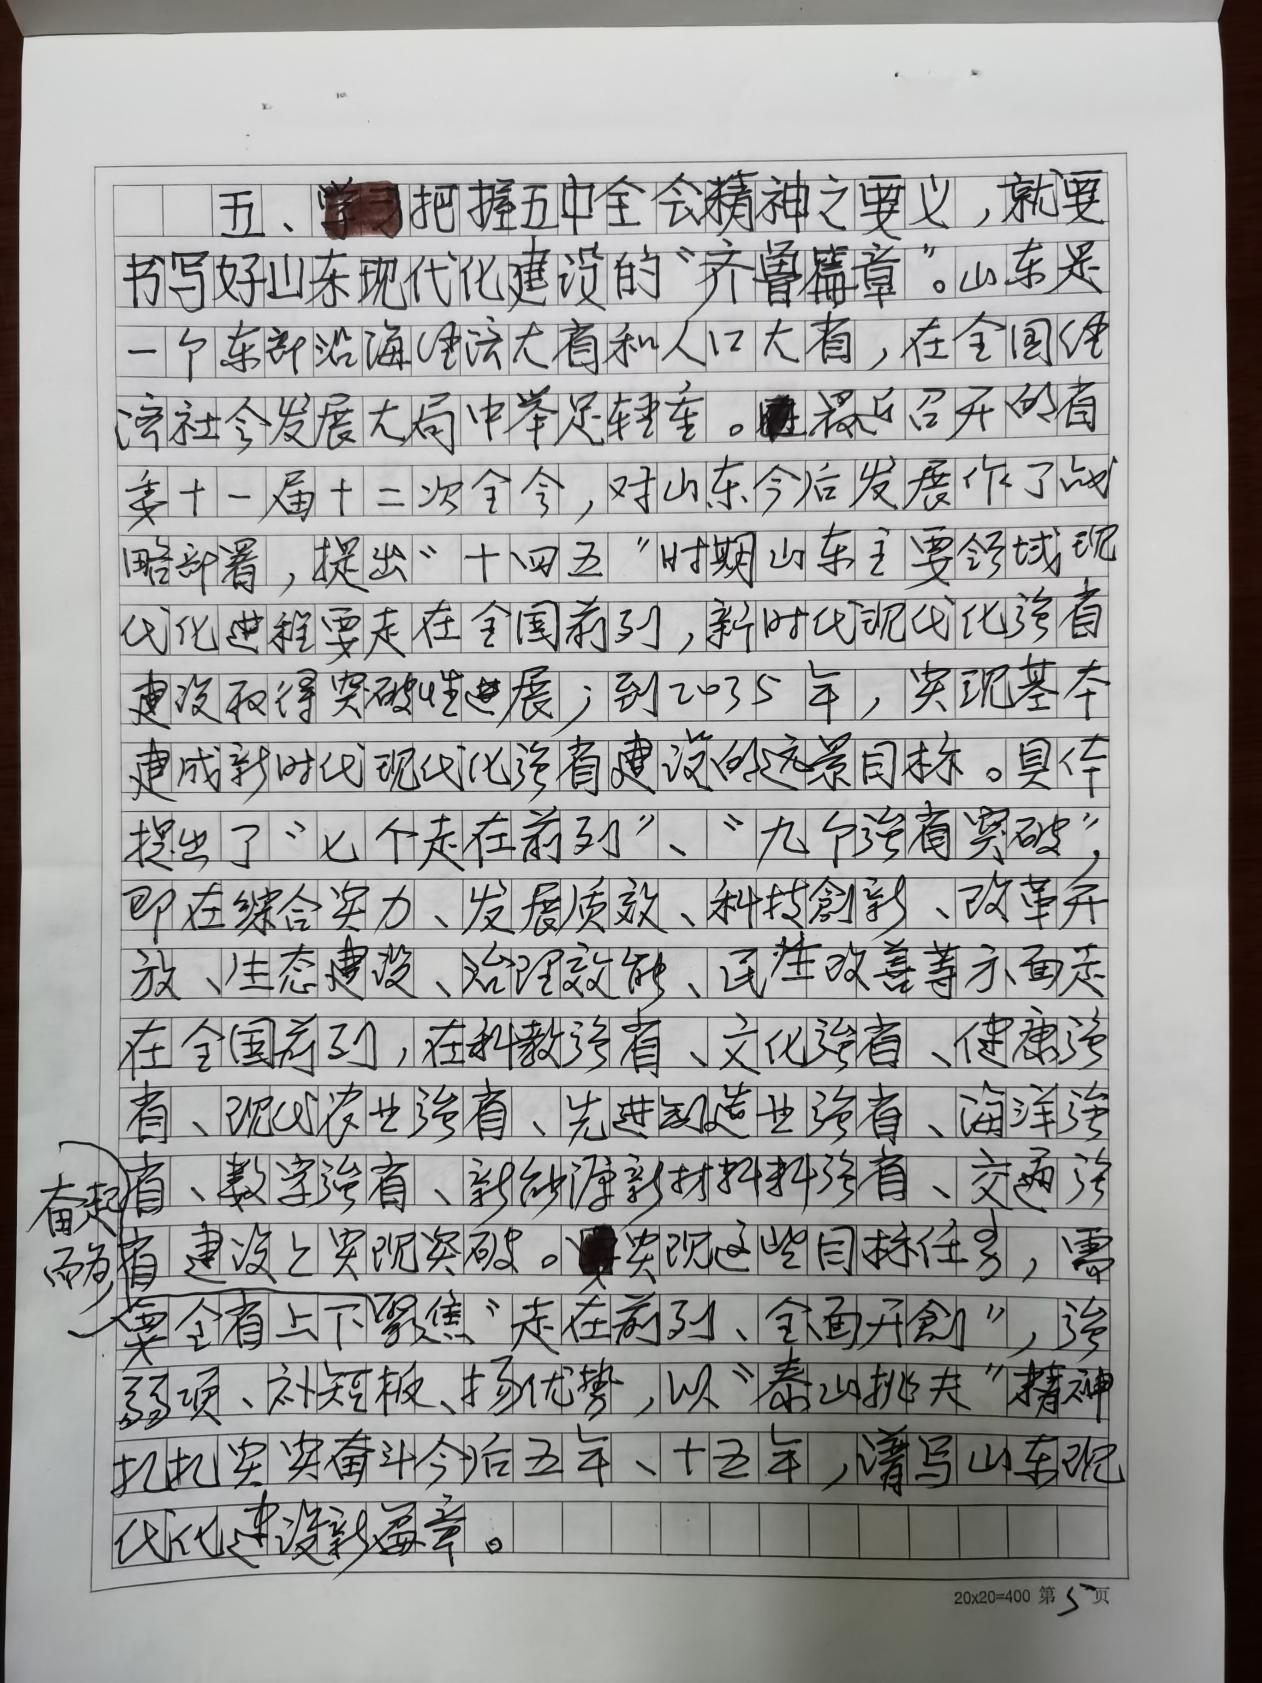 五、把握五中全会精神之要义，就要
书写好山东现代化建设的“齐鲁篇章”。山东是
一个东部沿海经济大省和人口大省，在全国经
济社会发展大局中举足轻重。最近召开的省
委十一届十二次全会，对山东今后发展作了战
略部署，提出“十四五”时期山东主要领域现
代化进程要走在全国前列，新时代现代化强省
建设取得突破性进展；到2035年，实现基本
建成新时代现代化强省建设的远景目标。具体
提出了“七个走在前列”、“九个强省突破”，
即在综合实力、发展质效、科技创新、改革开
放、生态建设、治理效能、民生改善等方面走
在全国前列，在科教强省、文化强省、健康强
省、现代农业强省、先进制造业强省、海洋强
省、数字强省、新能源新材料强省、交通强
省建设上实现突破。实现这些目标任务，需
要全省上下聚焦“走在前列、全面开创”，强
弱项、补短板、扬优势，以“泰山挑夫”精神
扎扎实实奋斗今后五年、十五年，谱写山东现
代化建设新篇章。
奋起
而为，
20x20=400 第5页